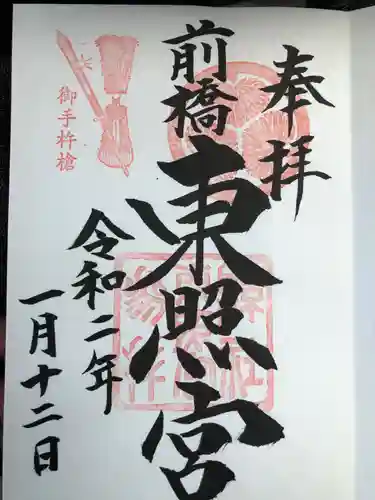 奉拝
前橋
東照宮
令和二年
一月十二日
御手杵槍